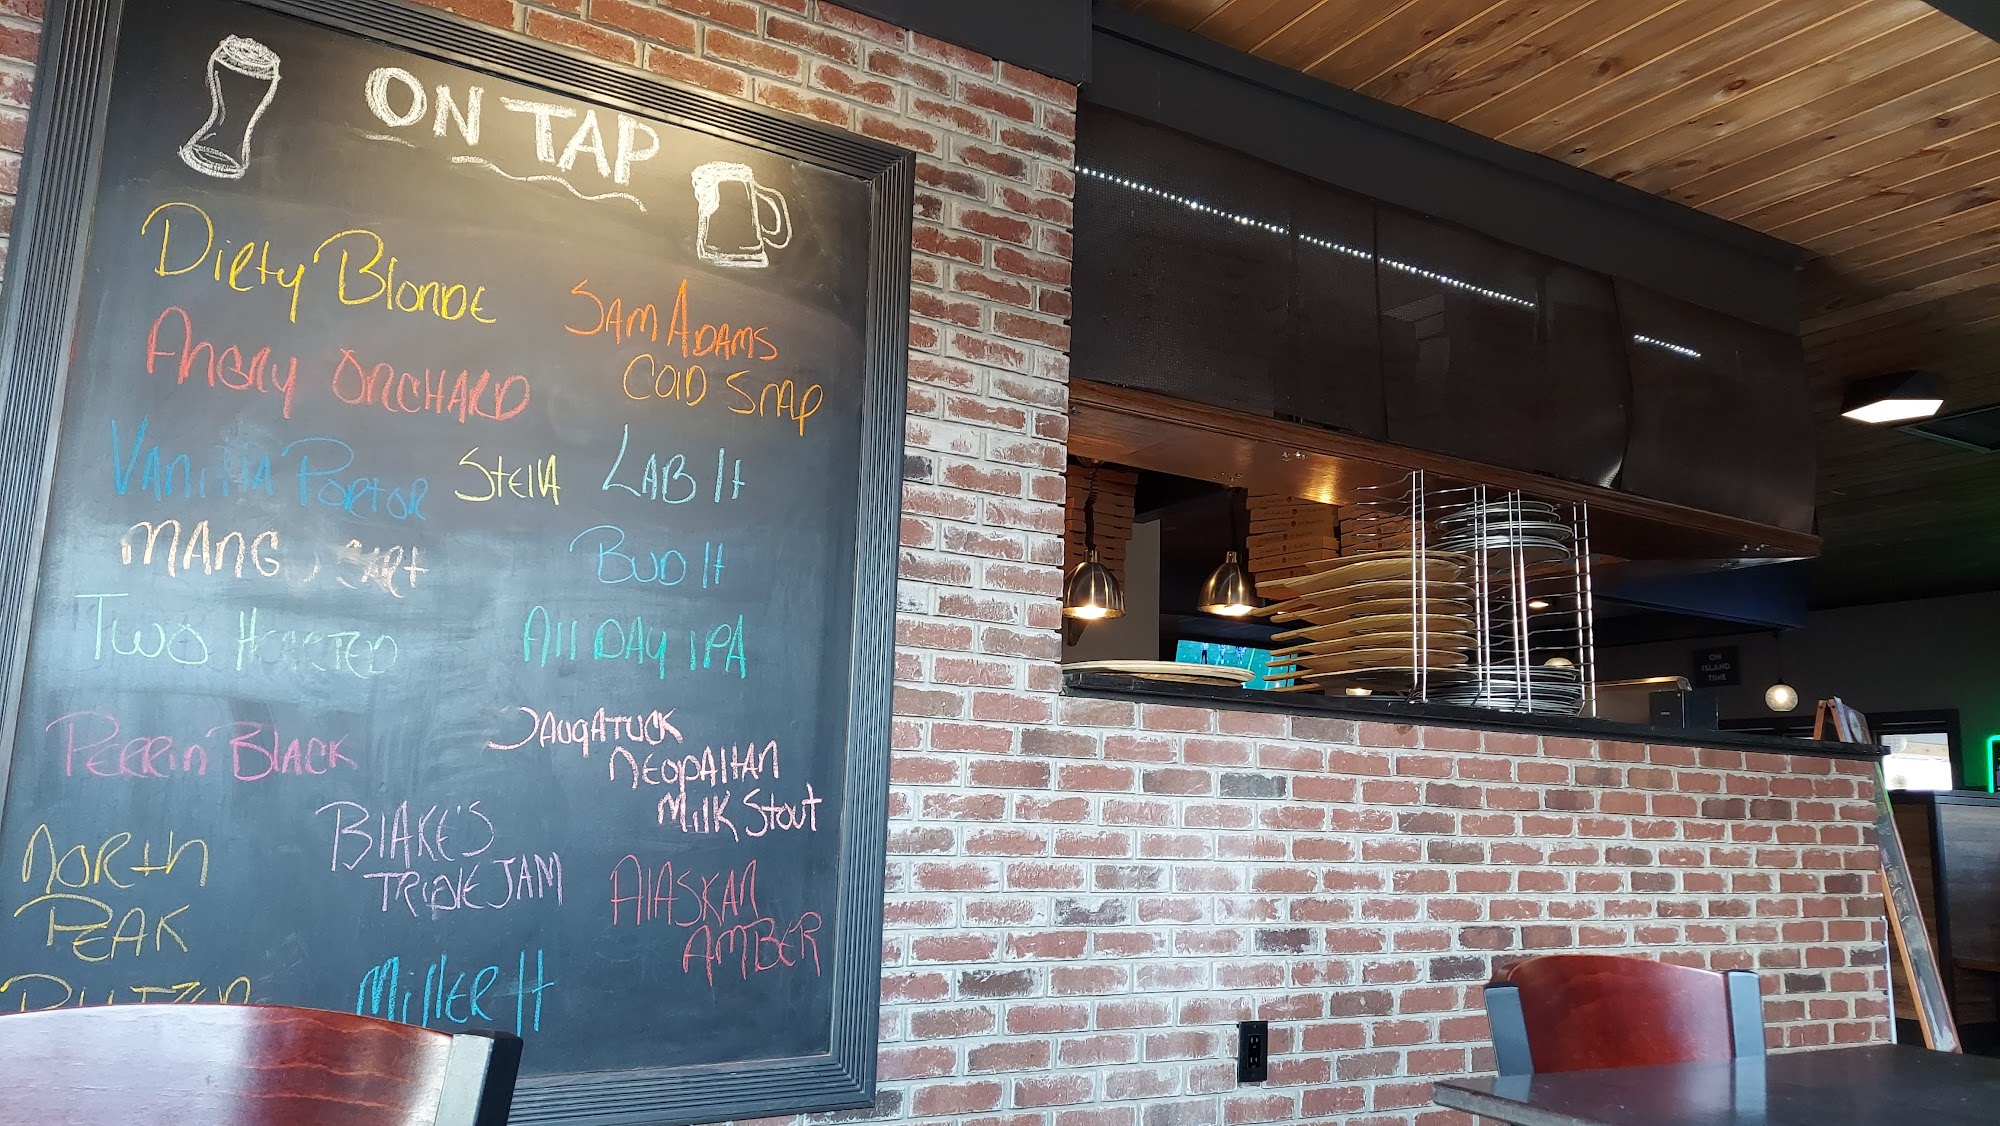 ON TAP
Dirty Blonde
SAM ADAMS
COlD SNAP
Angry ORCHARD
VANillA PORTOR
StEllA
LAB lt
MANGO CART
BUD lt
TWO HEARTED
All DAY IPA
PERRIn BlACK
SAUGATUCK
NEOPAlitAN
MilK Stout
NORth
PEAK
BlAKE'S
TRIPlE JAM
AlASKAN
AMBER
MillER lt
ON
ISLAND
TIME